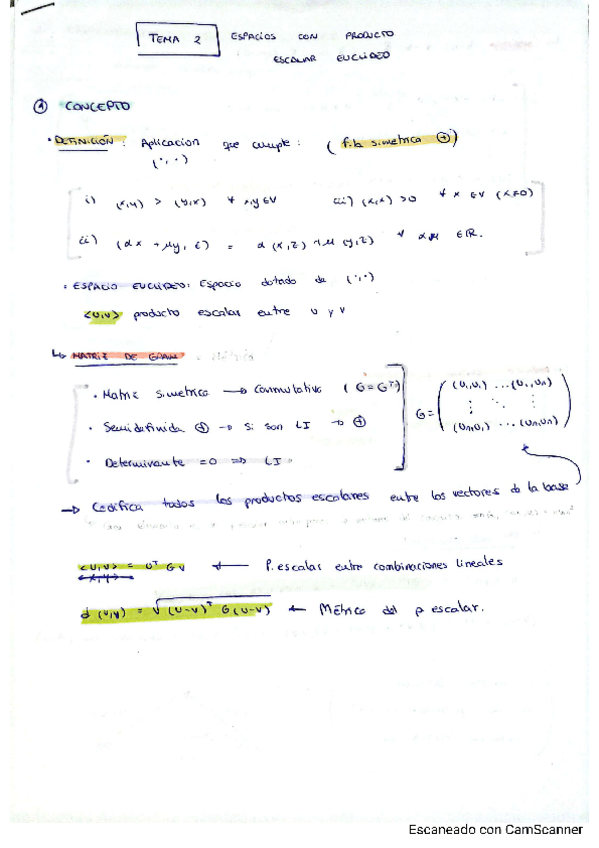 TEMA 2 ESPACIOS CON PRODUCTO
ESCALAR EUCLIDEO
① CONCEPTO
• DEFINICIÓN: Aplicacion que cumple: (f.b.a simetrica ⊕)
(·,·)
i) (x,y) > (y,x) ∀ x,y ∈V iii) (x,x) >0 ∀ x ∈V (x≠0)
ii) (αx + μy, z) = α (x,z) + μ (y,z) ∀ α,μ ∈ IR.
• ESPACIO EUCLIDEO: Espacio dotado de (·,·)
<u,v> producto escalar entre u y v
↳ MATRIZ DE GRAM
• Matriz simetrica → Conmutativa (G=Gᵀ)
• Semidefinida ⊕ → Si son LI → ⊕
• Determinante =0 => LI
G = ( (u₁,u₁) ... (u₁,un)
⋮ ⋱ ⋮
(un,u₁) ... (un,un) )
→ Codifica todos los productos escalares entre los vectores de la base
<u,v> = uᵀ G v ← P. escalar entre combinaciones lineales
d (u,v) = √(u-v)ᵀ G(u-v) ← Métrica del p escalar.
Escaneado con CamScanner